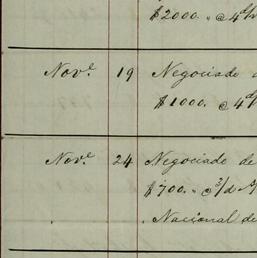 $2000. @ 4 d/v
Nov.e 19 Negociado
$1000. @ 4 d/
Nov.e 24 Negociado de
$700. @ 3/d
Nacional de